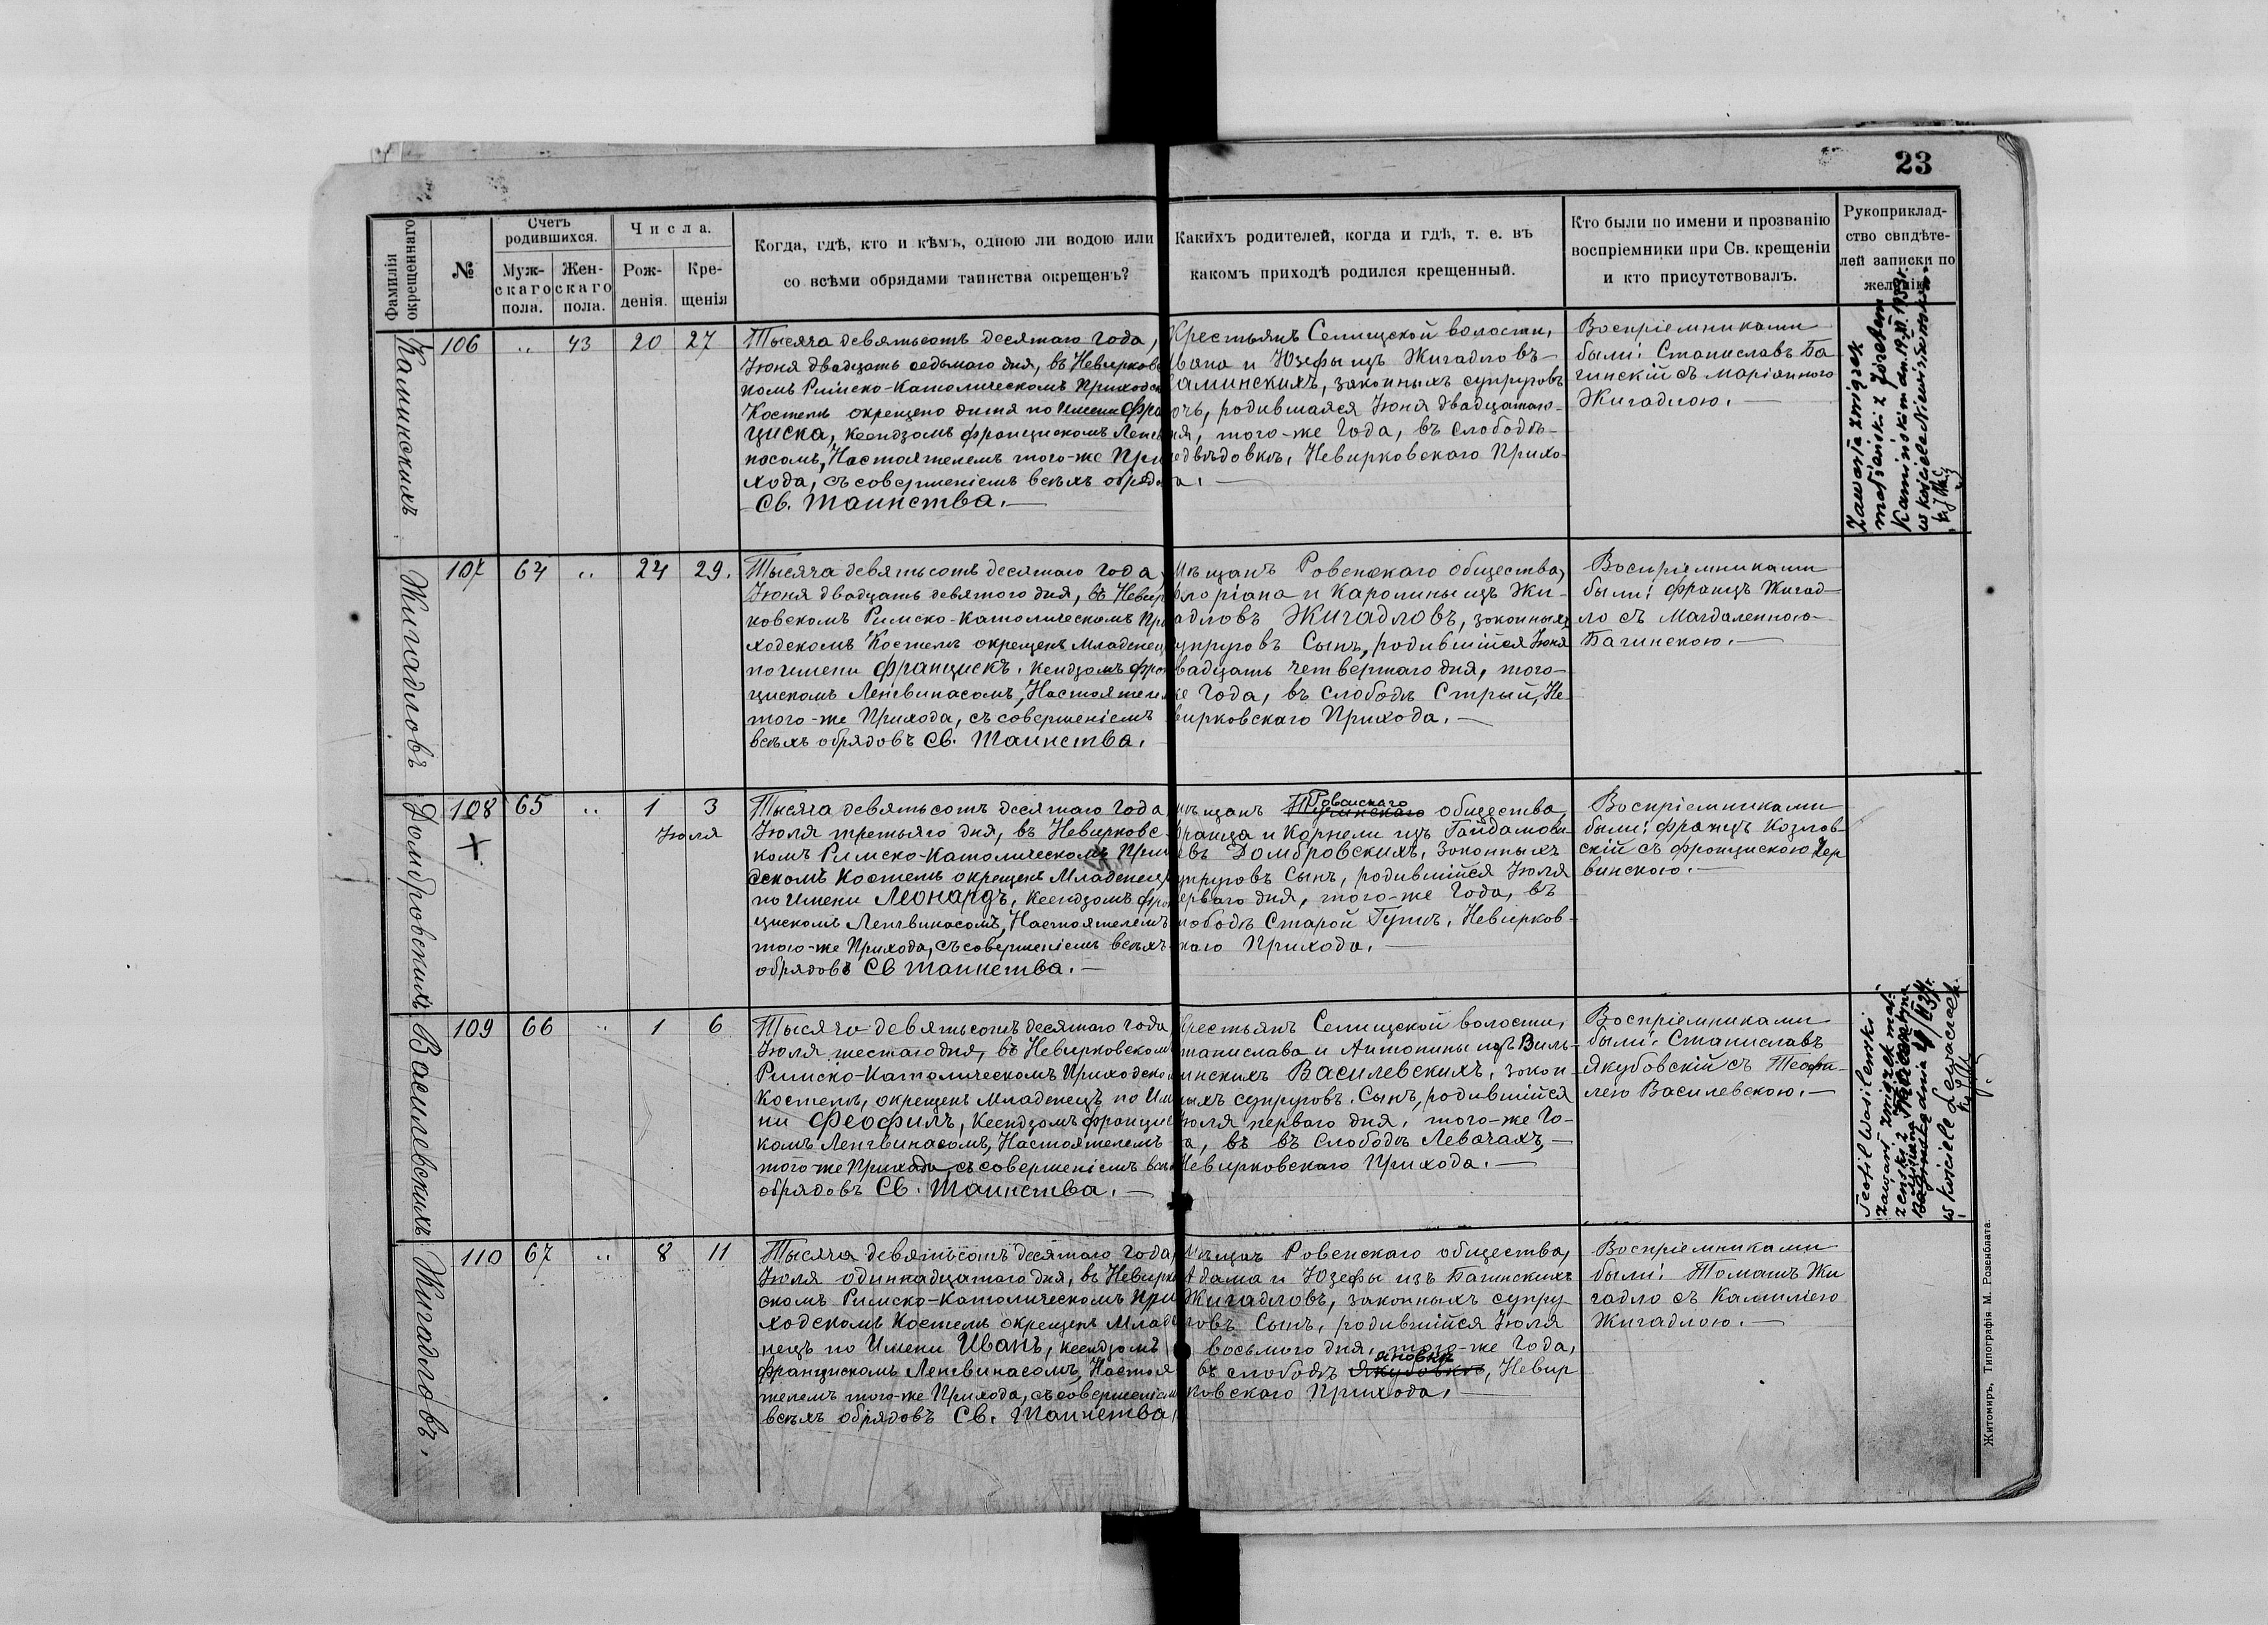 23
Фамилія
окрещеннаго
№
Счетъ
родившихся.
Муж-
скаго
пола.
Жен-
скаго
пола.
Числа.
Рож-
денія.
Кре-
щенія
Когда, гдѣ, кто и кѣмъ, одною ли водою или
со всѣми обрядами таинства окрещенъ?
Каких родителей, когда и гдѣ, т. е. въ
какомъ приходѣ родился крещенный.
Кто были по имени и прозванію
воспріемники при Св. крещеніи
и кто присутствовалъ.
Рукоприклад-
ство свидѣте-
лей записки по
желанію
Каминскихъ
106 „ 43 20 27
Тысяча девятьсотъ десятаго года,
Іюня двадцать седьмаго дня, въ Невирковс
комъ Римско-Католическомъ Приходск
Костелѣ окрещено дитя по Имени Фра
циска, Ксендзомъ Францискомъ Ленгв
насомъ, Настоятелемъ того-же При
хода, съ совершеніемъ всѣхъ обрядо
Св. Таинства.—
Крестьянъ Селищской волости,
Ивана и Юзефы изъ Жигадловъ—
Каминскихъ, законныхъ супруговъ
очь, родившаяся Іюня двадцатаго—
ня, того-же Года, въ слободѣ—
едвѣдовкѣ, Невирковскаго Прихо-
а.—
Воспріемниками
были: Станиславъ Ба
гинскій съ Маріанною
Жигадлою.—
Zawarła związek
małżeński z Józefem
Kamińskim dn. 19.XI.193 r.
w kościele Niewirkowskim
Жигадловъ
107 64 „ 24 29.
Тысяча девятьсотъ десятаго года,
Іюня двадцать девятого дня, въ Невир
ковскомъ Римско-Католическомъ При
ходскомъ Костелѣ окрещенъ Младенец
по имени Францискъ, Ксендзомъ Фран
цискомъ Ленгвинасомъ, Настоятеле
того-же Прихода, съ совершеніемъ
всѣхъ обрядовъ Св. Таинства.
Мѣщанъ Ровенскаго общества,
Флоріана и Каролины изъ Жи-
адловъ Жигадловъ, законныхъ
упруговъ Сынъ, родившійся Іюня
вадцать четвертаго дня, того-
же Года, въ слободѣ Стрый, Не-
вирковскаго Прихода.—
Воспріемниками
были: Францъ Жигад-
ло съ Магдаленною—
Багинскою.—
Домбровскихъ
108 65 „ 1 3
Іюля
Тысяча девятьсотъ десятаго Года
Іюля третьяго дня, въ Невирковс-
комъ Римско-Католическомъ Прихо
дскомъ Костелѣ окрещенъ Младенецъ
по Имени Леонардъ, Ксендзомъ Фран
цискомъ Ленгвинасомъ, Настоятелемъ
того-же Прихода, съ совершеніемъ всѣхъ
обрядовъ Св Таинства.—
Ровенскаго
мѣщанъ общества,
Франца и Корнели изъ Гайдамови
евъ Домбровскихъ, Законныхъ
упруговъ Сынъ, родившійся Іюля
ерваго дня, того-же Года, въ
лободѣ Старой Гутѣ, Невирков-
скаго Прихода.—
Воспріемниками
были: Францъ Козлов-
скій съ Францискою Чер
винскою.—
Василевскихъ
109 66 „ 1 6
Тысяча девятьсотъ десятаго года
Іюля шестаго дня, въ Невирковском
Римско-Католическомъ Приходско
Костелѣ, окрещенъ Младенецъ по Име
ни Феофилъ, Ксендзомъ Францис
комъ Ленгвинасомъ, Настоятелемъ
того-же Прихода, съ совершеніемъ всѣх
обрядовъ Св. Таинства.—
Крестьянъ Селищской волости,
таниславa и Антонины изъ Виль-
инскихъ Василевскихъ, закон-
ныхъ супруговъ. Сынъ, родившійся
Іюля перваго дня, того-же Го-
а, въ въ слободѣ Левачахъ,—
Невирковскаго Прихода.—
Воспріемниками
были: Станиславъ
Якубовскій съ Теофи-
лею Василевскою.—
Teofil Wasilewski
zawarł związek mał-
żeński z
w kościele Lewaczach
Жигадловъ.
110 67 „ 8 11
Тысяча девятьсотъ десятаго Года,
Іюля одиннадцатаго дня, въ Невирко
скомъ Римско-Католическомъ При
ходскомъ Костелѣ окрещенъ Млад
нецъ по Имени Иванъ, Ксендзомъ
Францискомъ Ленгвинасомъ, Настоя
телемъ того-же Прихода, съ совершеніем
всѣхъ обрядовъ Св. Таинства,
Мѣщанъ Ровенскаго общества,
Адама и Юзефы изъ Багинскихъ
Жигадловъ, законныхъ супру
говъ Сынъ, родившійся Іюля
восьмого дня, того-же Года,
яновкѣ
въ слободѣ Якубовкѣ, Невир
ковскаго Прихода.—
Воспріемниками
были: Томашъ Жи
гадло съ Камиліею
Жигадлою.—
Житомиръ, Типографія М. Розенблата.